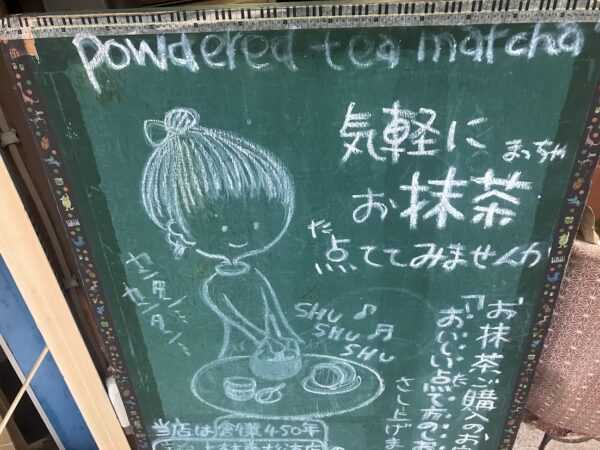 powdered tea matcha
気軽に
まっちゃ
お抹茶
た
点ててみませんか
カンタン♪
カンタン♪
SHU♪
SHU♬
SHU
お抹茶ご購入のお
「おいしい点て方のしお
さし上げま
当店は創業450年